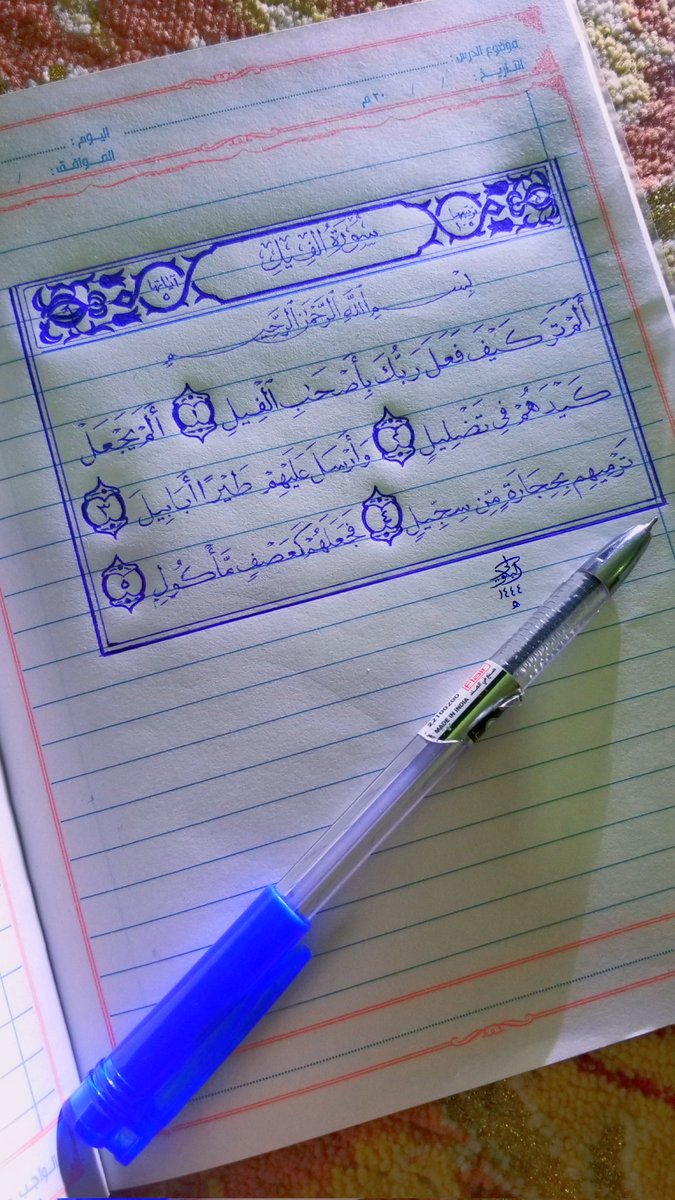 موضوع الدرس:
التاريخ: / / ٢٠ م
اليوم:
الموافق: /
ترتيبها ١٠٥
سُورَةُ الفِيلِ
آياتها ٥
بِسْمِ ٱللَّهِ ٱلرَّحْمَٰنِ ٱلرَّحِيمِ
أَلَمْ تَرَ كَيْفَ فَعَلَ رَبُّكَ بِأَصْحَٰبِ ٱلْفِيلِ ١ أَلَمْ يَجْعَلْ
كَيْدَهُمْ فِي تَضْلِيلٍ ٢ وَأَرْسَلَ عَلَيْهِمْ طَيْرًا أَبَابِيلَ ٣
تَرْمِيهِم بِحِجَارَةٍ مِّن سِجِّيلٍ ٤ فَجَعَلَهُمْ كَعَصْفٍ مَّأْكُولٍ ٥
١٤٤٤
ه
FLAIR
صنع في الهند
22100200
MADE IN INDIA
الواجب